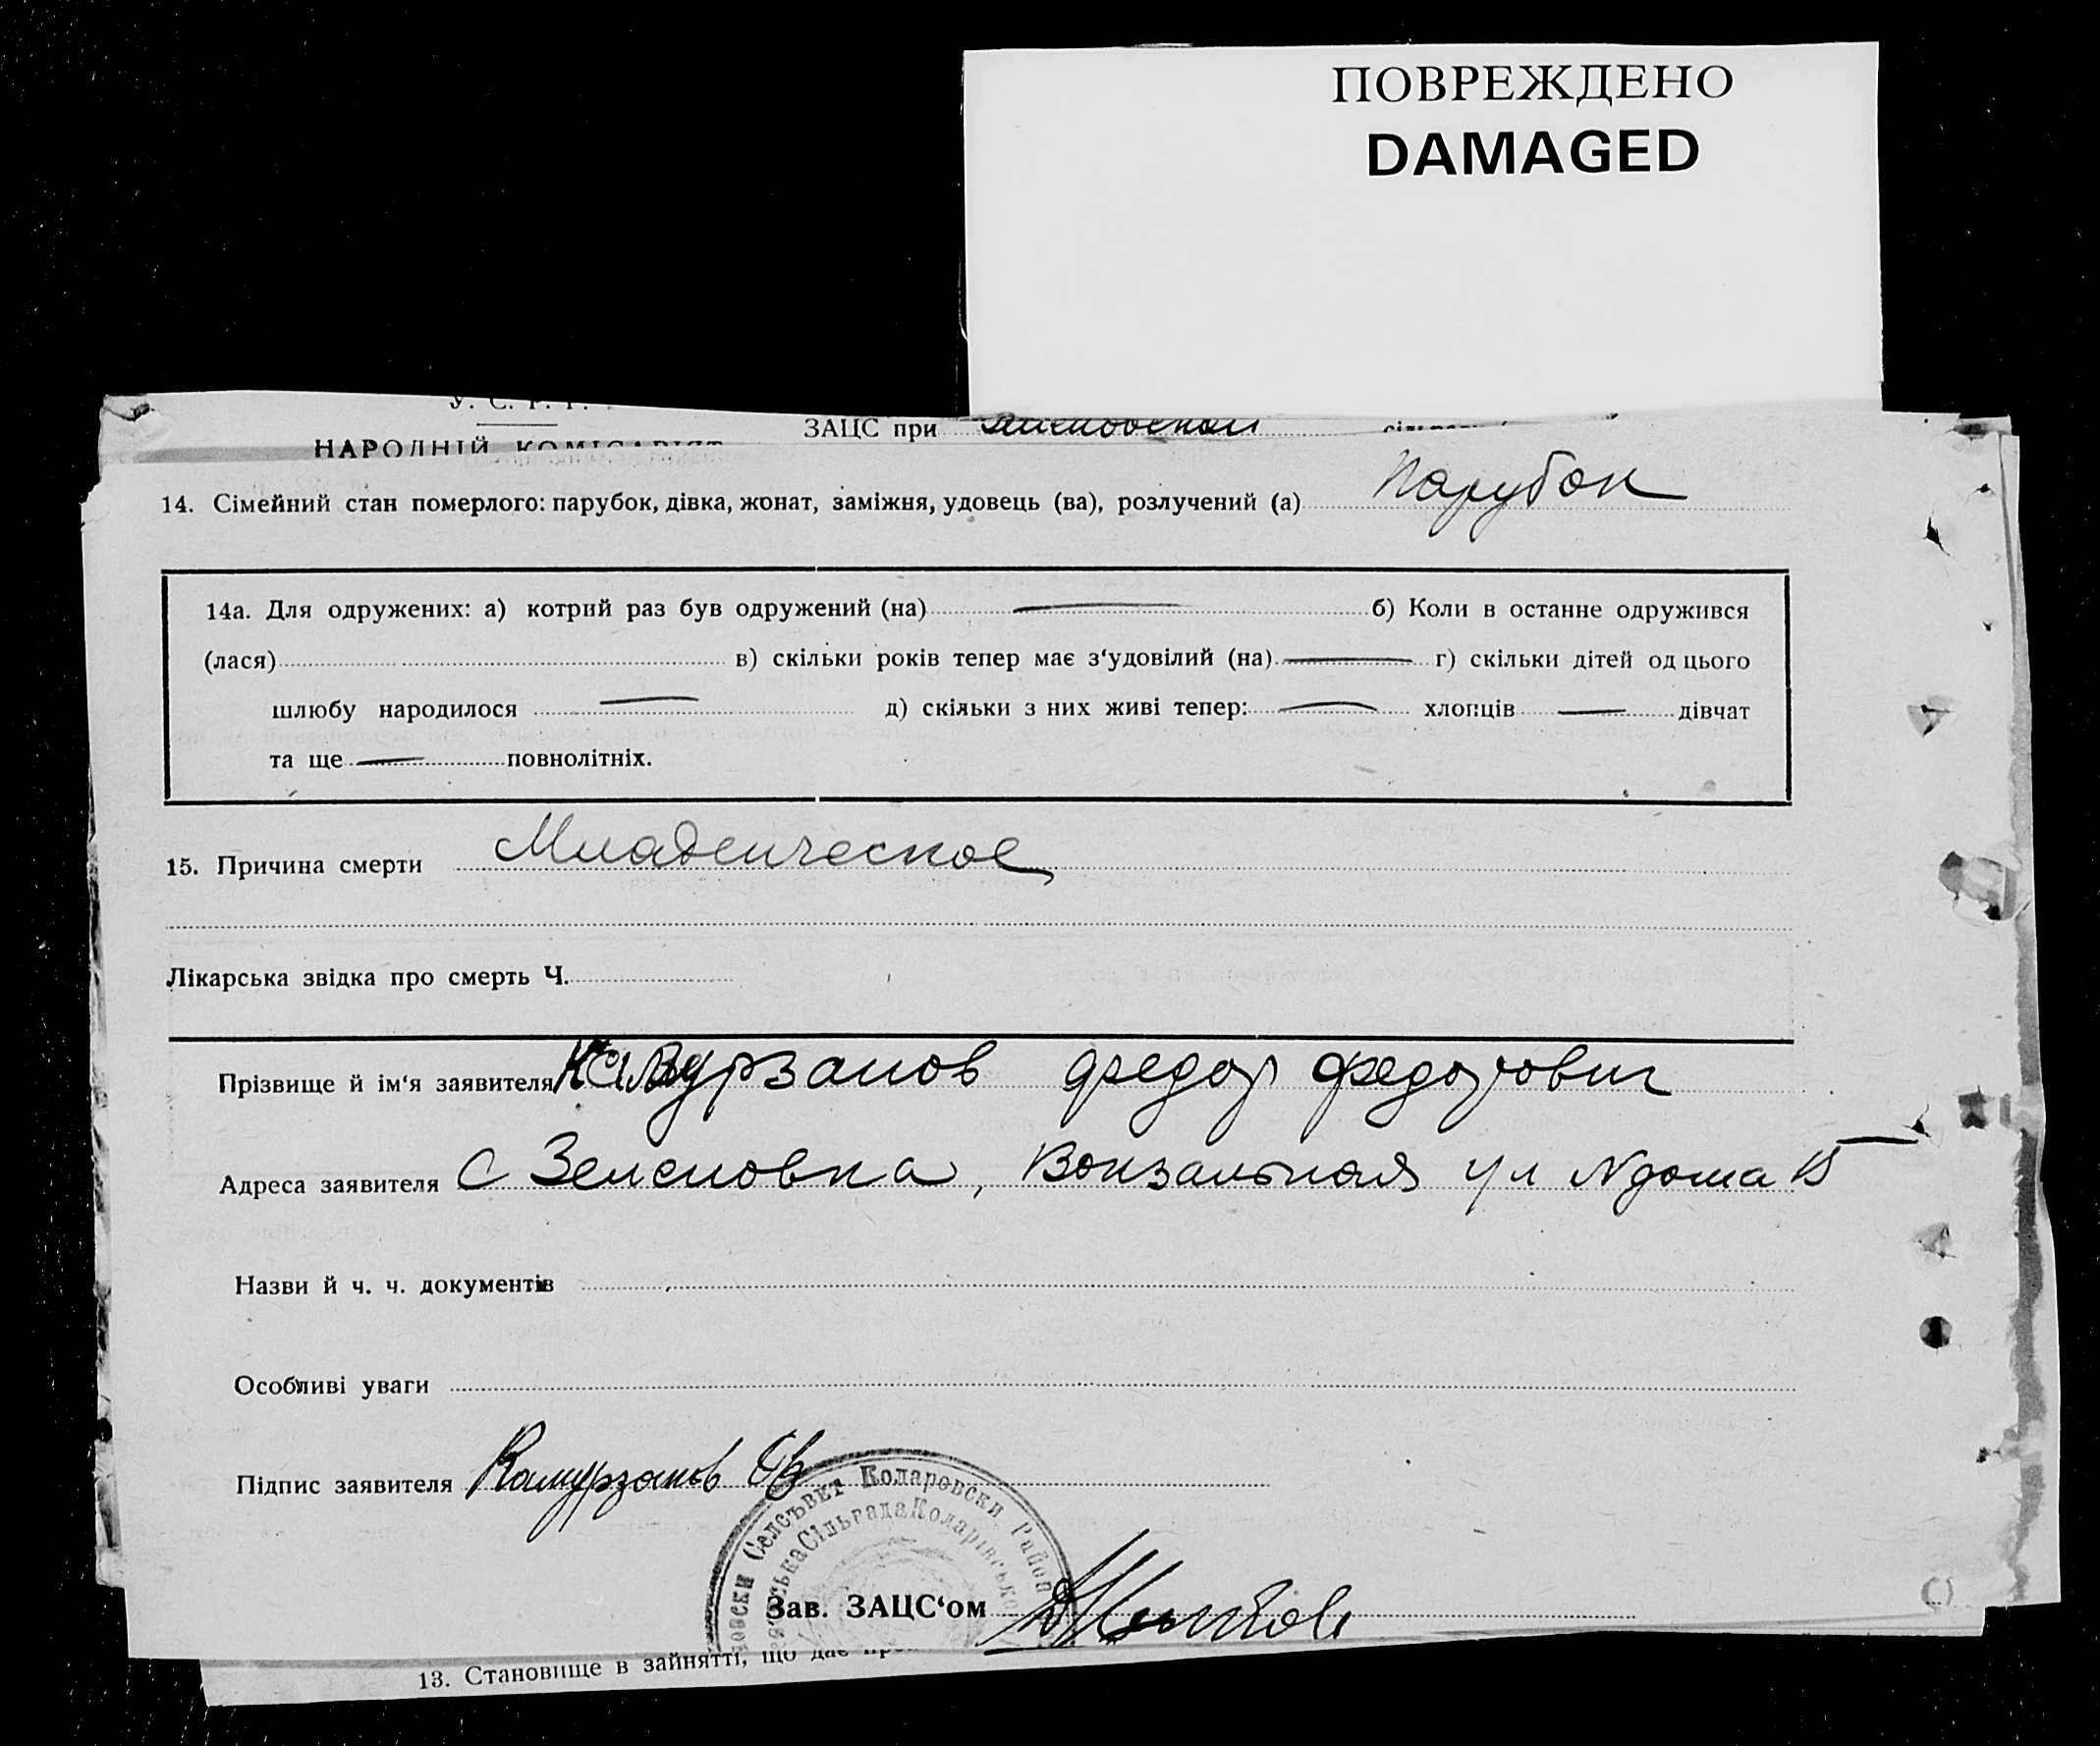 ПОВРЕЖДЕНО
DAMAGED
У. С. Р. Р.
ЗАЦС при
НАРОДНІЙ КОМІСАРІЯТ
14. Сімейний стан померлого: парубок, дівка, жонат, заміжня, удовець (ва), розлучений (а) Парубок
14а. Для одружених: а) котрий раз був одружений (на) б) Коли в останнє одружився
(лася) в) скільки років тепер має з‘удовілий (на) г) скільки дітей од цього
шлюбу народилося д) скільки з них живі тепер: хлопців дівчат
та ще повнолітніх.
15. Причина смерти Младенческое
Лікарська звідка про смерть Ч.
Прізвище й ім‘я заявителя Камурзанов Федор Федорович
Адреса заявителя с Зеленовка, Вокзальная ул № дома 15
Назви й ч. ч. документів
Особливі уваги
Підпис заявителя Камурзанов
Селсъвет Коларовски Район
Сільрада Коларівсько
Зав. ЗАЦС‘ом
13. Становище в зайнятті, що дає